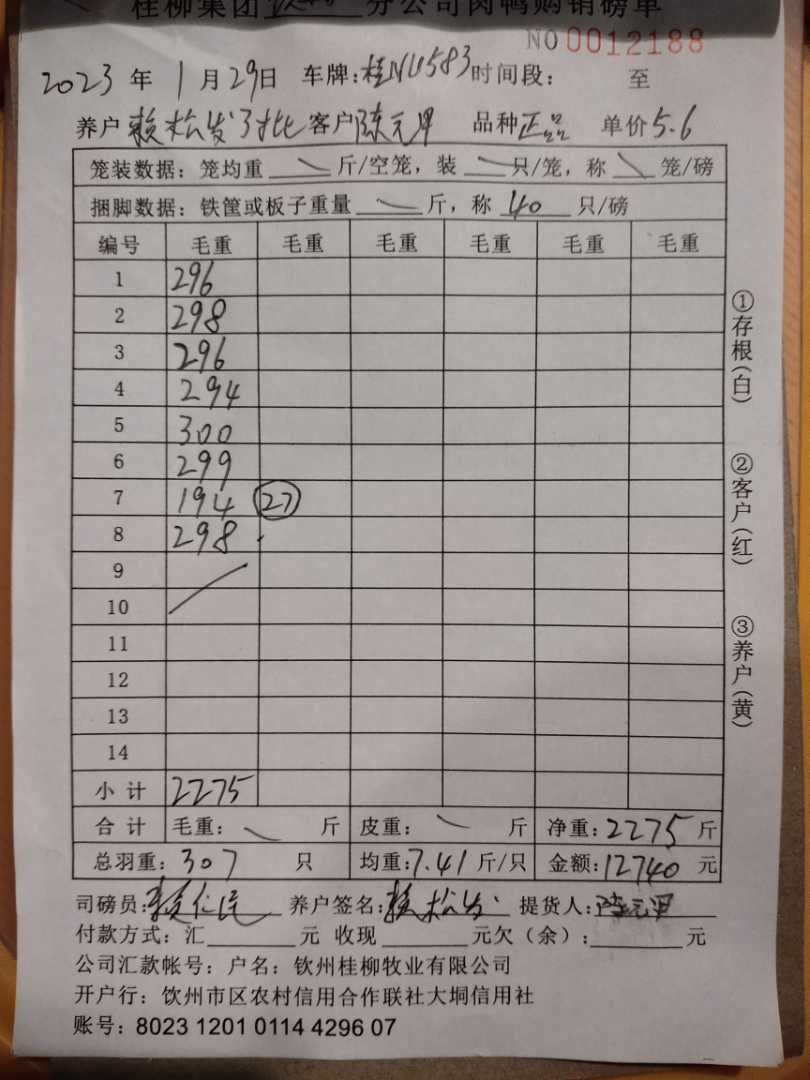 桂柳集团 分公司肉鸭购销磅单
NO 0012188
2023 年 1 月 29 日 车牌:桂NU583 时间段: 至
养户 赖松发 对比 客户 陈元甲 品种 正品 单价 5.6
笼装数据: 笼均重 斤/空笼, 装 只/笼, 称 笼/磅
捆脚数据: 铁筐或板子重量 斤, 称 40 只/磅
编号 毛重 毛重 毛重 毛重 毛重 毛重
1 296
2 298
3 296
4 294
5 300
6 299
7 194 27
8 298
9
10
11
12
13
14
小计 2275
合计 毛重: 斤 皮重: 斤 净重: 2275 斤
总羽重: 307 只 均重: 7.41 斤/只 金额: 12740 元
司磅员: 赖仁民 养户签名: 赖松发 提货人: 陈元甲
付款方式: 汇 元 收现 元欠(余): 元
公司汇款帐号: 户名: 钦州桂柳牧业有限公司
开户行: 饮州市区农村信用合作联社大垌信用社
账号: 8023 1201 0114 4296 07
①存根(白)
②客户(红)
③养户(黄)